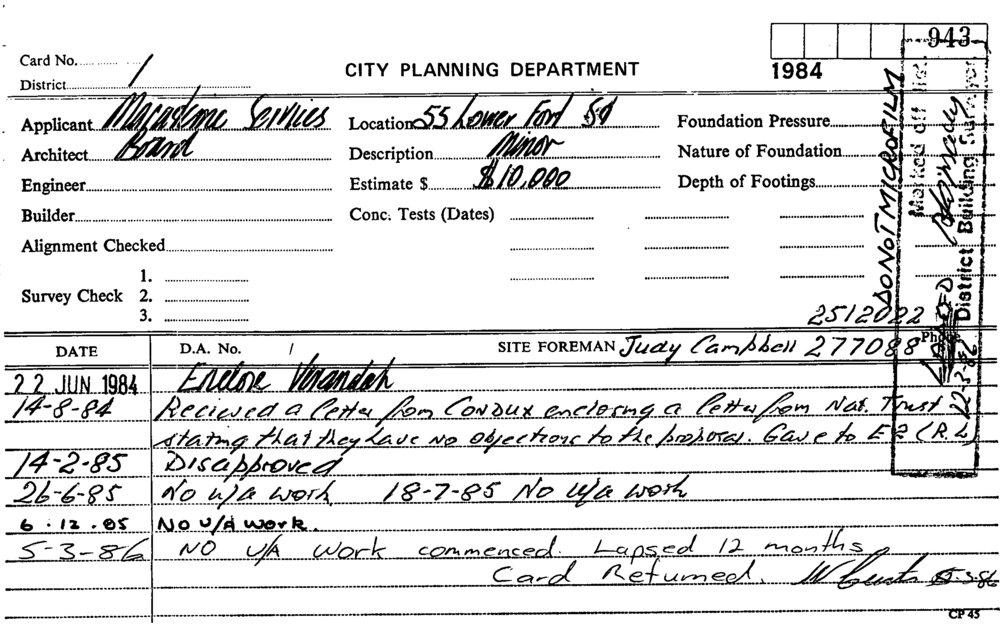 943
Card No. /
CITY PLANNING DEPARTMENT
1984
District /
Applicant Macadame Services
Location 55 Lower Fort St
Foundation Pressure
Architect Board
Description Minor
Nature of Foundation
Engineer
Estimate $ $10,000
Depth of Footings
Builder
Conc. Tests (Dates)
Alignment Checked
Survey Check 1.
2.
3.
DO NOT MICROFILM
Marked off list
District Building Surveyor
12-3-86
2512022
DATE
D.A. No. /
SITE FOREMAN Judy Campbell 277088 Phone
22 JUN 1984 Enclose Verandah
14-8-84 Recieved a letter from Condux enclosing a letter from Nat. Trust
stating that they have no objections to the proposal. Gave to E2 (R.L)
14-2-85 Disapproved
26-6-85 No u/a work 18-7-85 No u/a work
6.12.85 No U/A work.
5-3-86 NO U/A work commenced. Lapsed 12 months
Card Returned. 5.3.86
CP 45